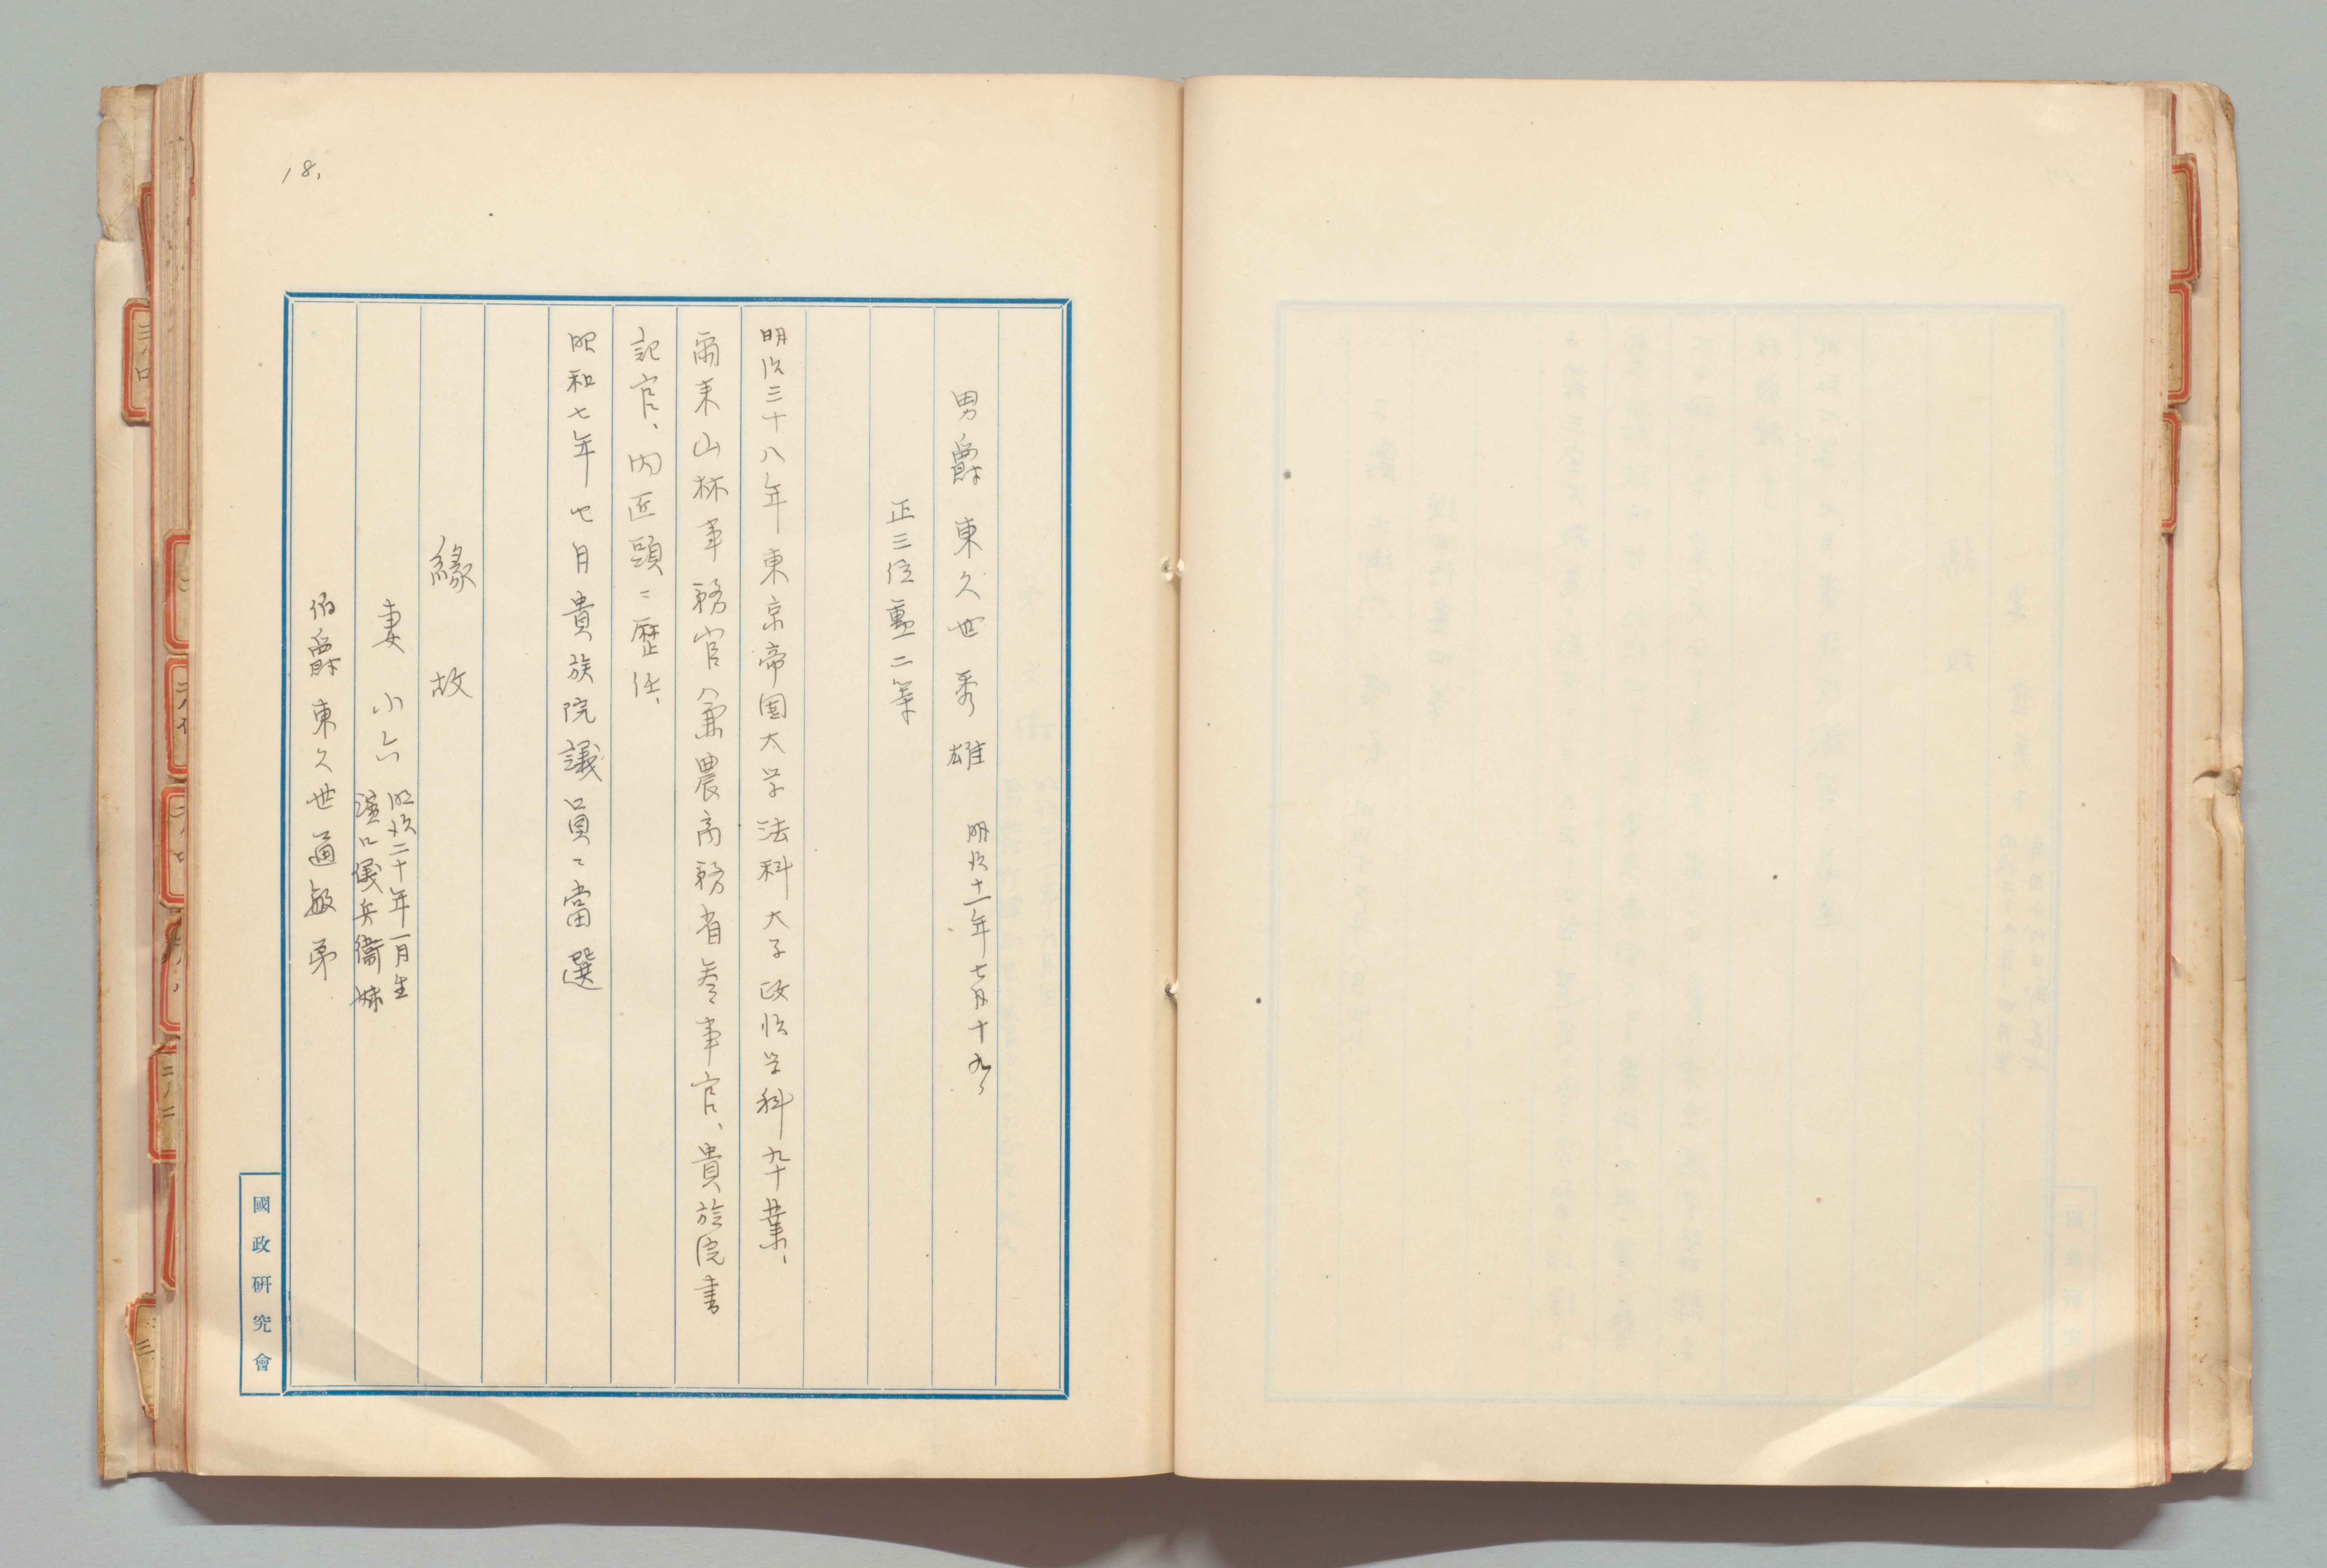 18.
男爵 東久世秀雄 明治十一年七月十九、
正三位勲二等
明治三十八年東京帝国大学法科大学政治学科卆業、
爾来山林事務官兼農商務省参事官、貴族院書
記官、内匠頭ニ歴任、
昭和七年七月貴族院議員ニ當選
緣故
妻 小六 明治二十年一月生
濱口儀兵衞妹
伯爵東久世通敏弟
國政研究會